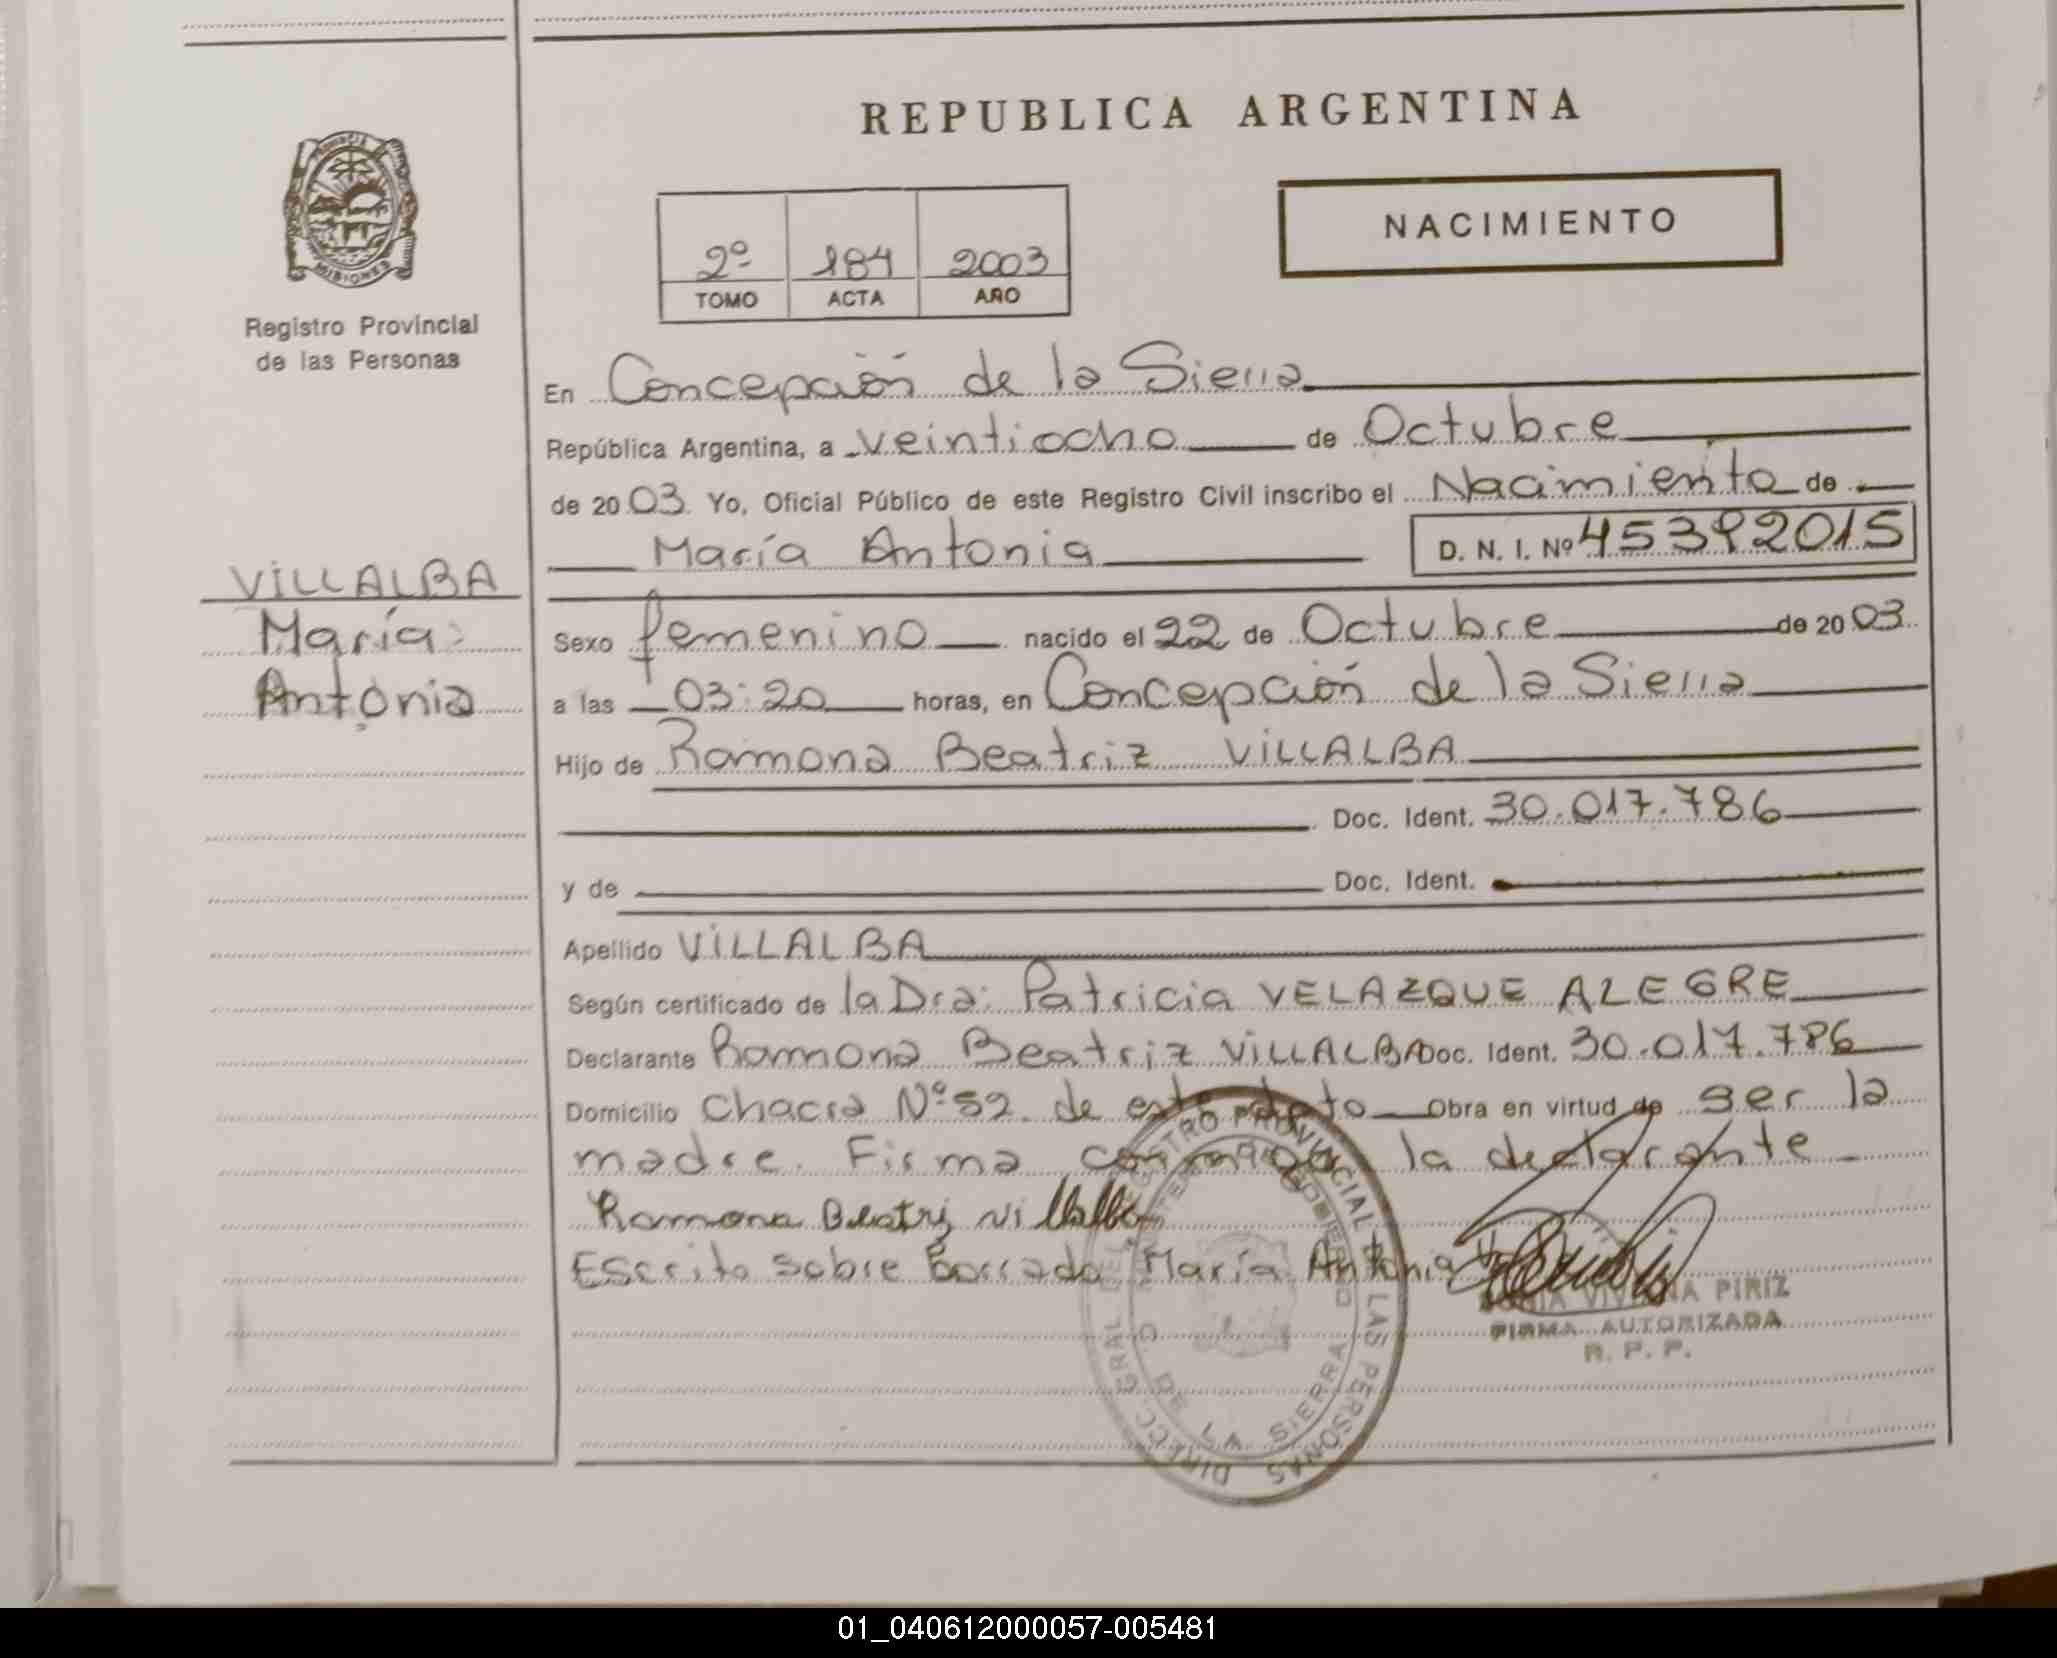 REPUBLICA ARGENTINA
PROVINCIA
MISIONES
Registro Provincial
de las Personas
2º 184 2003
TOMO ACTA AÑO
NACIMIENTO
En Concepción de la Sierra
República Argentina, a veintiocho de Octubre
de 2003. Yo, Oficial Público de este Registro Civil inscribo el Nacimiento de
María Antonia D. N. I. Nº 45392015
VILLALBA
María
Antonia
Sexo femenino nacido el 22 de Octubre de 2003
a las 03:20 horas, en Concepción de la Sierra
Hijo de Ramona Beatriz VILLALBA
Doc. Ident. 30.017.786
y de Doc. Ident.
Apellido VILLALBA
Según certificado de la Dra: Patricia VELAZQUE ALEGRE
Declarante Ramona Beatriz VILLALBA Doc. Ident. 30.017.786
Domicilio Chacra Nº 52. de este dpto Obra en virtud de ser la
madre. Firma conmigo la declarante
Ramona Beatriz Villalba
Escrito sobre Borrado María Antonia
DIRECC. GRAL. DEL REGISTRO PROVINCIAL DE LAS PERSONAS
MINISTERIO DE GOBIERNO
C. DE LA SIERRA
SONIA VIVIANA PIRIZ
FIRMA AUTORIZADA
R. P. P.
01_040612000057-005481